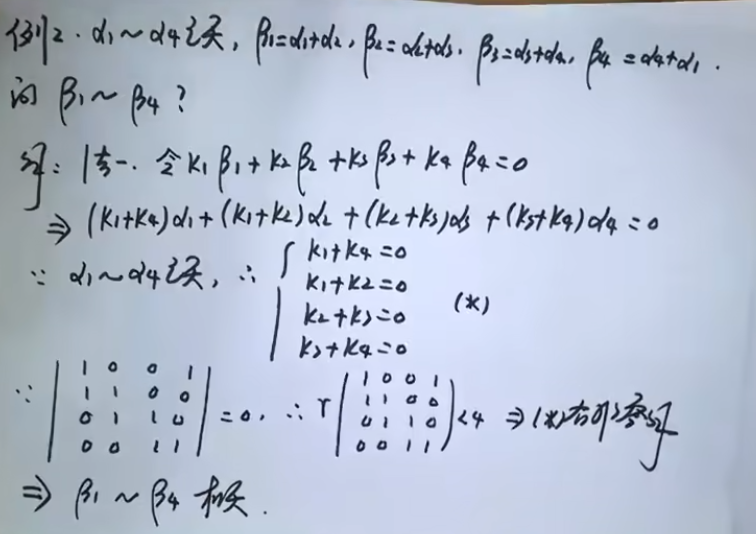 例2. α1~α4无关, β1=α1+α2, β2=α2+α3, β3=α3+α4, β4=α4+α1.
问 β1~β4?
解: 法一. 令 k1β1+k2β2+k3β3+k4β4=0
⇒ (k1+k4)α1+(k1+k2)α2+(k2+k3)α3+(k3+k4)α4=0
∵ α1~α4无关, ∴ { k1+k4=0
k1+k2=0
k2+k3=0 (*)
k3+k4=0
∵ | 1 0 0 1 | =0, ∴ r ( 1 0 0 1 ) <4 ⇒ (*)有非零解
1 1 0 0   1 1 0 0
0 1 1 0   0 1 1 0
0 0 1 1   0 0 1 1
⇒ β1~β4 相关.